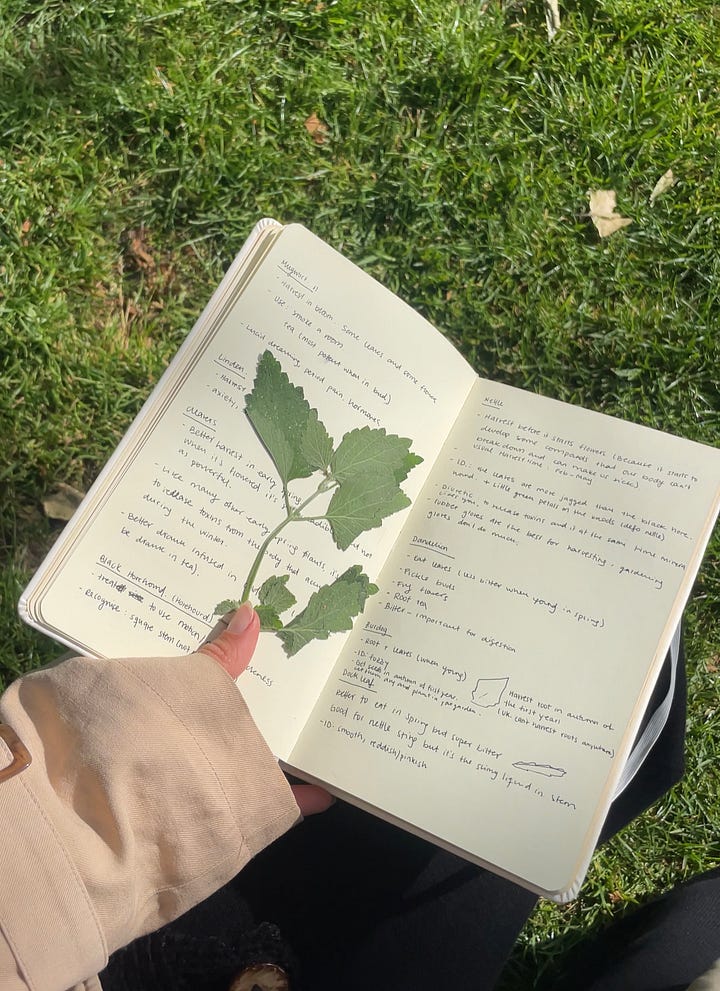 Mugwort
- Harvest in bloom Some leaves and some flowers
- Use: smoke a room
Tea (most potent when in bud)
- Lucid dreaming, period pain, hormones
Linden
- Harvest
- anxiety,
Cleavers
- Better harvest in early spring
when it's flowered it's not
as powerful.
- Like many other early spring plants, it
to release toxins from the body that
during the winter.
- Better drank infused in
be drank in tea).
Black Horehound (Horehound)
- treat to use
- Recognise: square stem (not
Nettle
- Harvest before it starts flowers (because it starts to
develop some compounds that our body can't
breakdown and can make us sick)
usual harvest time: Feb-May
- ID: the leaves are more jagged than the black hore
hound + little green petals on the ends (defo nettle)
- Diuretic
to release toxins and is at the same time mineral
- Rubber gloves are the best for harvesting, gardening
gloves don't do much.
Dandelion
- Eat leaves (less bitter when young in spring)
- Pickle buds
- Fry flowers
- Root tea
- Bitter - important for digestion
Burdog
- Root + leaves (when young)
- ID: fuzzy
- Get seeds in autumn of full year.
and plant in your garden.
Harvest root in autumn of
the first year!
(UK: can't harvest roots anywhere)
Dock Leaf
Better to eat in spring but super bitter
Good for nettle sting but it's the slimy liquid in stem
- ID: smooth, reddish/pinkish